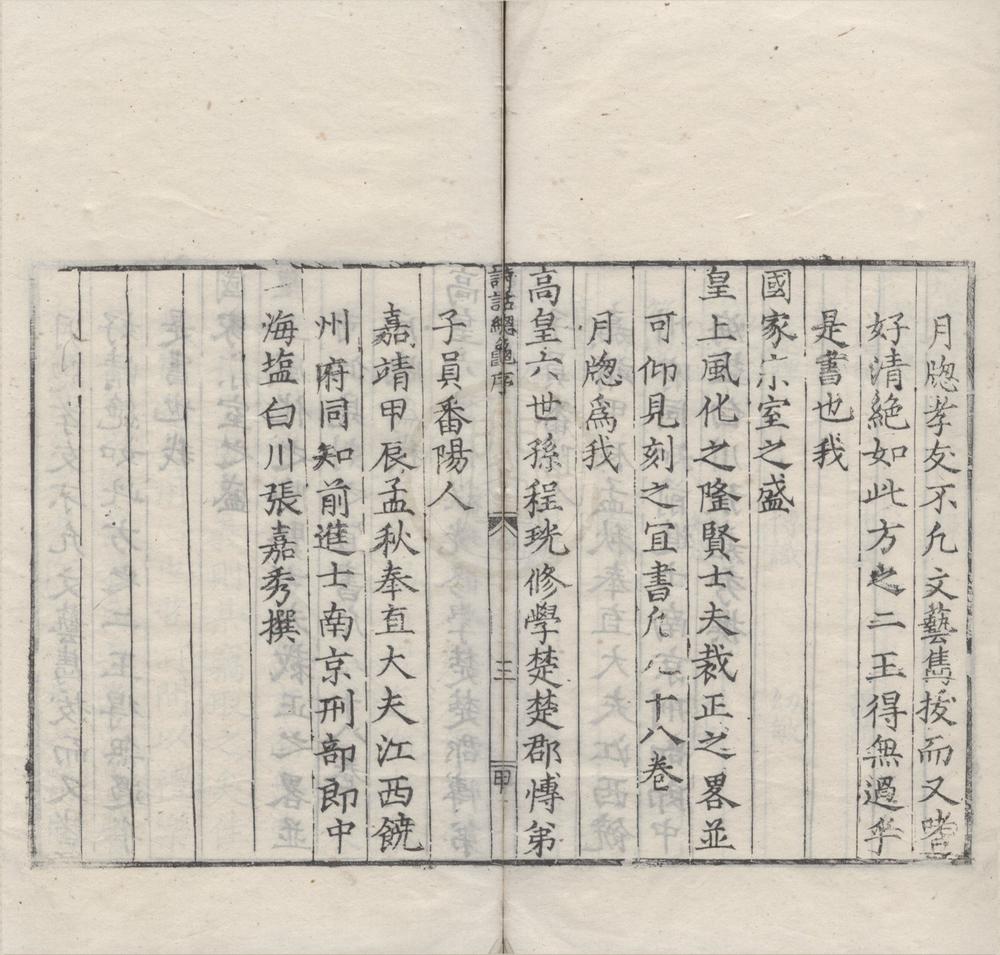 月牎孝友不凡文藝雋拔而又嗜
好清絶如此方之二王得無過乎
是書也我
國家宗室之盛
皇上風化之隆賢士夫裁正之畧並
可仰見刻之宜書凡八十八卷
月牎爲我
高皇六世孫程珖修學楚楚郡愽弟
詩話總龜序
三
甲
子員番陽人
嘉靖甲辰孟秋奉直大夫江西饒
州府同知前進士南京刑部郎中
海塩白川張嘉秀撰